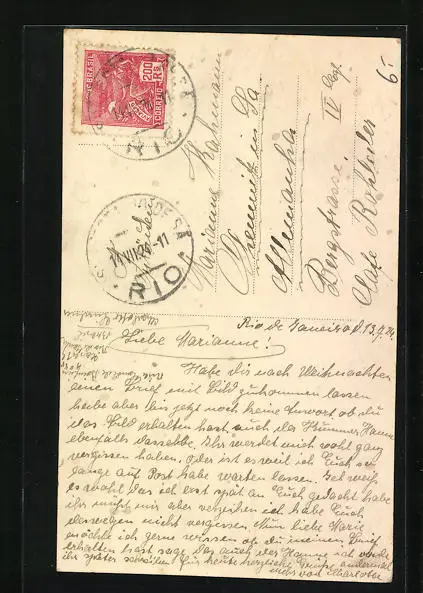 BRASIL
200 Rs
CORREIO
RIO
14 VII 24 11
RIO
6.-
Marianne Hahmann
Chemnitz in Sa
Allemanha
Bergstrasse IV
Cafe
Rio de Janeiro d. 13.7.24.
Liebe Marianne!
Habe dir nach Weihnachten
einen Brief mit Bild zukommen lassen
habe aber bis jetzt noch keine Antwort ob du
das Bild erhalten hast auch der Hanne
ebenfalls dasselbe. Ihr werdet mich wohl ganz
vergissen haben. oder ist es weil ich Euch so
lange auf Post habe warten lassen. Ich weiß
es wohl das ich erst spät an Euch gedacht habe
ihr müßt mir aber verzeihen ich habe Euch
deswegen nicht vergissen. Nun liebe Marie
möchte ich gerne wissen ob du meinen Brief
erhalten hast sage das auch der Hanne ich werde
ihr später schreiben. Für heute herzliche Grüße
von Charlotte